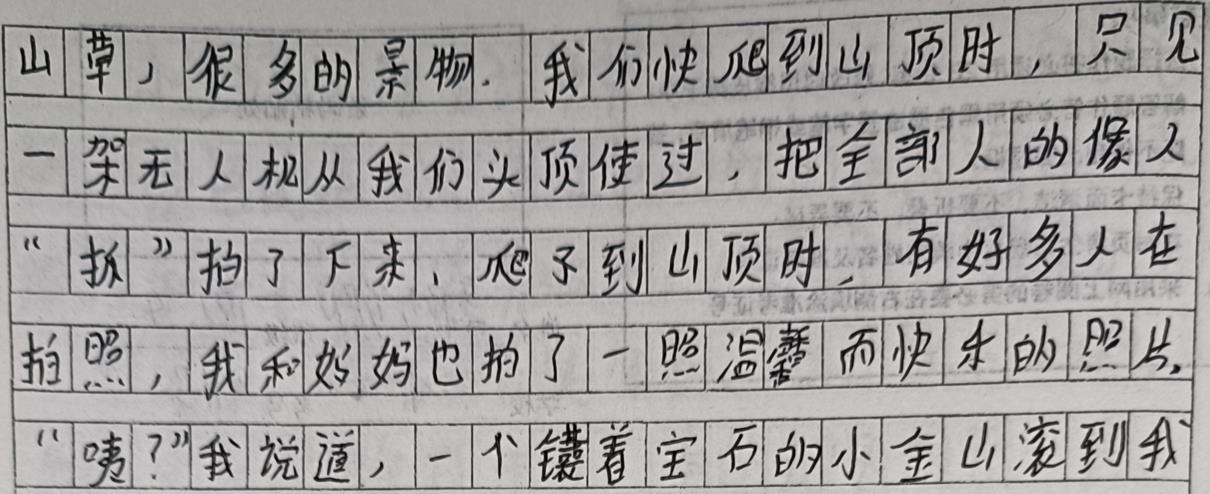 山草，很多的景物．我们快爬到山顶时，只见
一架无人机从我们头顶使过，把全部人的像人
“抓”拍了下来，爬了到山顶时，有好多人在
拍照，我和妈妈也拍了一照温馨而快乐的照片．
“咦？”我说道，一个镶着宝石的小金山滚到我